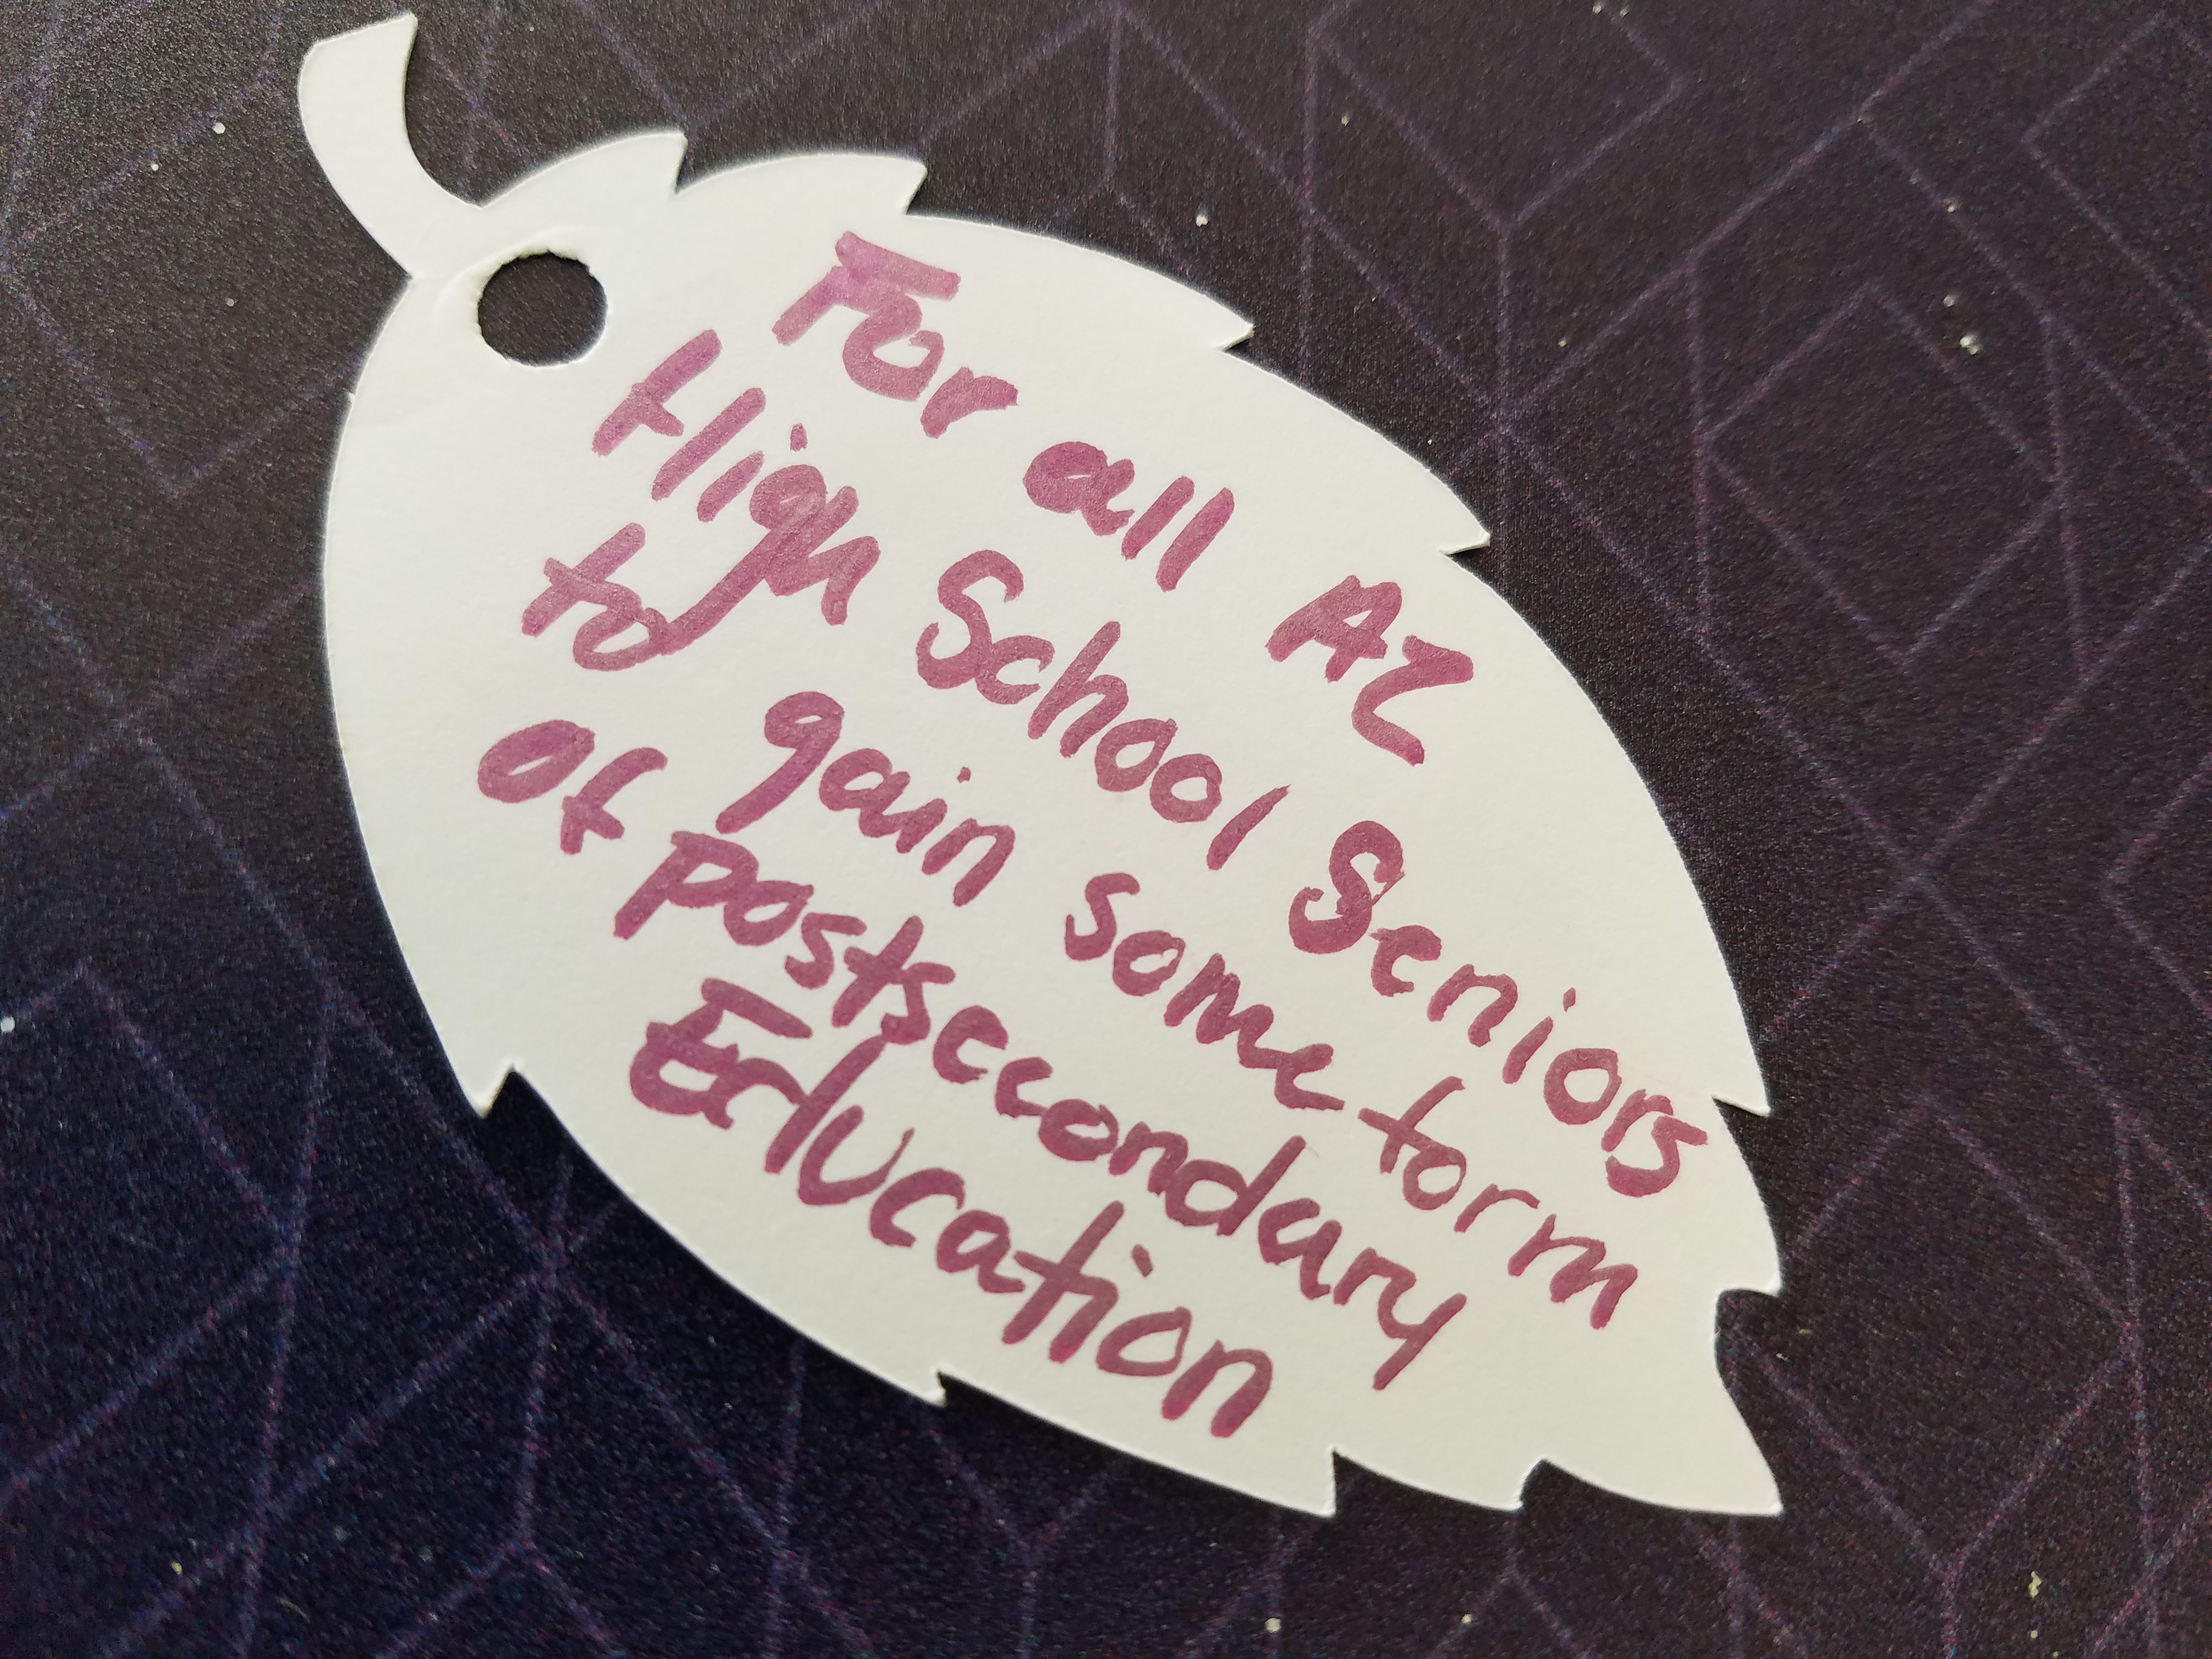 For all AZ
High School Seniors
to gain some form
of postsecondary
Education